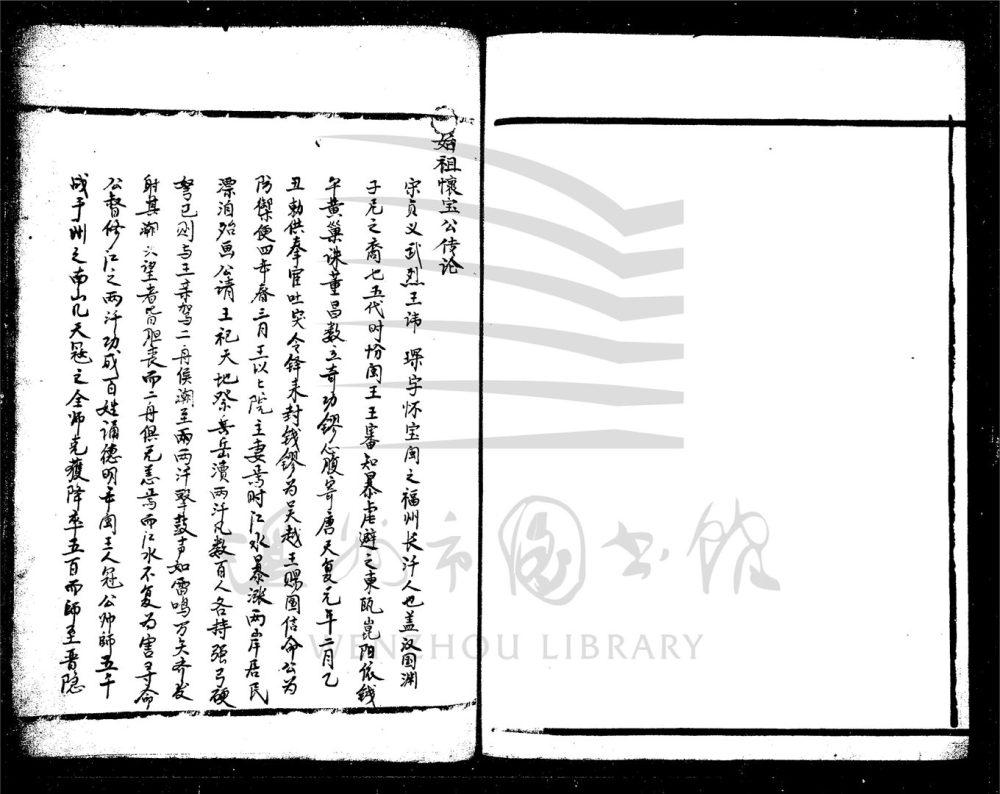 始祖懷宝公传论
宗贡义武烈王讳 琛字怀宝闽之福州长汗人也盖汉国渊
子尼之裔七五代时扮闽王王審知暴虐避之東瓯崑阳依钱
午黄巢诛董昌数立奇功鏐心腹寄唐天复元年二月乙
丑勅供奉官吐突令鋒来封钱鏐为吴越王赐国信命公为
防禦使四年春三月王以上院主妻焉时江水暴涨两岸居民
漂泊殆画公请王祀天地祭岳瀆两汗凡数百人各持强弓硬
弩已则与王亲驾二舟俟潮至两汗擊鼓声如雷鸣万矢齐发
射其潮头望者皆胆丧而二舟俱无恙焉而江水不复为害寻命
公督修江之两汗功成百姓誦德明年闽王入冠公帅師五千
战于州之南山几天冠之全师克獲降率五百而師至晋隐
温州市图书馆
WENZHOU LIBRARY